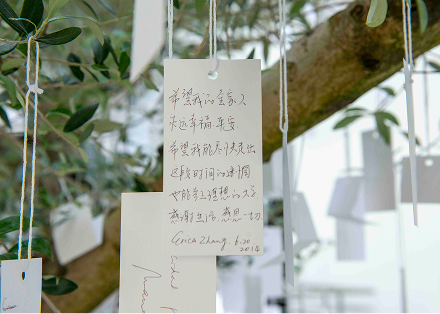 希望我的全家人
永远幸福平安
希望我能尽快走出
这段时间的迷惘
也能考上理想的大学
感谢生活，感恩一切
Erica Zhang. 6.20
2018